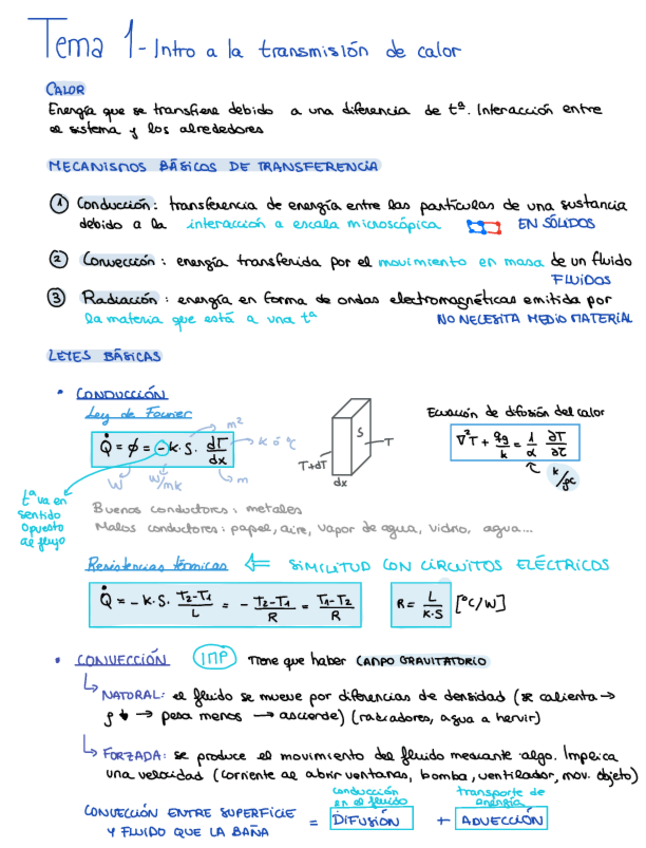 Tema 1 - Intro a la transmisión de calor
CALOR
Energía que se transfiere debido a una diferencia de tª. Interacción entre
el sistema y los alrededores
MECANISMOS BÁSICOS DE TRANSFERENCIA
① Conducción: transferencia de energía entre las partículas de una sustancia
debido a la interacción a escala microscópica EN SÓLIDOS
② Convección: energía transferida por el movimiento en masa de un fluido
FLUIDOS
③ Radiación: energía en forma de ondas electromagnéticas emitida por
la materia que está a una tª NO NECESITA MEDIO MATERIAL
LEYES BÁSICAS
• CONDUCCIÓN
Ley de Fourier
Q̇ = ϕ = -K·S· dT/dx
m²
K ó ºC
W
W/mK
m
tª va en
sentido
opuesto
al flujo
S
T
T+dT
dx
Ecuación de difusión del calor
∇²T + qg/k = 1/α ∂T/∂τ
k/ρc
Buenos conductores: metales
Malos conductores: papel, aire, vapor de agua, vidrio, agua...
Resistencias térmicas ⇐ SIMILITUD CON CIRCUITOS ELÉCTRICOS
Q̇ = -K·S· T2-T1/L = - T2-T1/R = T1-T2/R
R = L/K·S [ºC/W]
• CONVECCIÓN IMP Tiene que haber CAMPO GRAVITATORIO
↳ NATURAL: el fluido se mueve por diferencias de densidad (se calienta →
ρ↓ → pesa menos → asciende) (radiadores, agua a hervir)
↳ FORZADA: se produce el movimiento del fluido mediante algo. Implica
una velocidad (corriente al abrir ventanas, bomba, ventilador, mov. objeto)
conducción
en el fluido
transporte de
energía
CONVECCIÓN ENTRE SUPERFICIE
Y FLUIDO QUE LA BAÑA = DIFUSIÓN + ADVECCIÓN